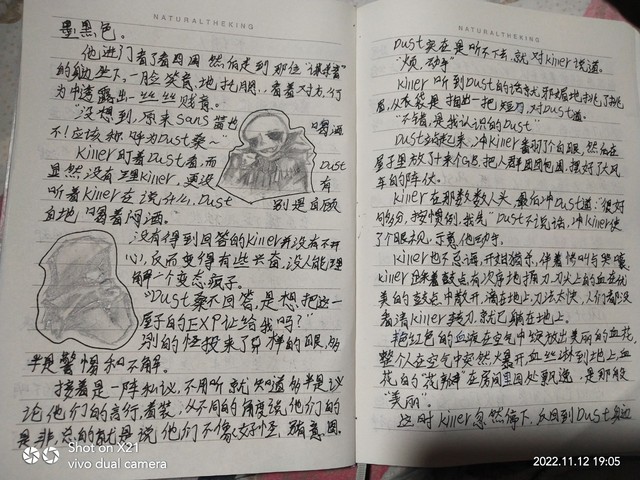 NATURALTHEKING
墨黑色。
他进门看了看四周 然后走到那位"课桌客"
的身边坐下,一脸笑意,地托腮,看着对方,行
为中透露出一丝丝贱意。
"没想到,原来Sans酱也喝酒
不!应该称呼为Dust桑~"
Killer盯着Dust看,而Dust
显然没有理Killer,更没有
听着Killer在说什么,Dust别是自顾
自地喝着闷酒。
没有得到回答的Killer并没有不开
心,反而变得有些兴奋,没人能理
解一个变态疯子。
"Dust桑不回答,是想把这一
屋子的EXP让给我吗?"
别的怪投来了异样的眼,多
半是警惕和不解。
接着是一阵私议,不用听就知道多半是议
论他们的言行,着装,从不同的角度说他们的
是非,总的就是说他们不像好怪,有意图。
Shot on X21
vivo dual camera
NATURALTHEKING
Dust实在是听不下去,就对Killer说道。
"烦,动手"
Killer听到Dust的话就邪里地挑了挑
眉,从衣袋里掏出一把短刀,对Dust道。
"不错,是我认识的Dust"
Dust站起来,冲Killer翻了个白眼,然后在
屋子里放了十来个GB,把人群团团包围,摆好了大风
车的阵仗。
Killer在那数数人头,最后冲Dust道:很好
对半分,按惯例我先"Dust不说话,冲Killer使
了个眼色,示意他动手。
Killer也不忌讳,开始猎杀,伴着惨叫与哭嚎,
Killer踩着鼓点有次序地挥刀,刀尖上的血在优
美的鼓点中散开,洒在地上,刀法太快,人们都没
看清Killer挥刀,就已躺在地上。
艳红色的血液在空气中绽放出美丽的血花,
整个人在空气中突然火暴开,血丝淋到地上,血
花,白的"花瓣"在房间里四处飘逸,是那般
"美丽"。
这时Killer忽然停下,反回到Dust身边
2022.11.12 19:05